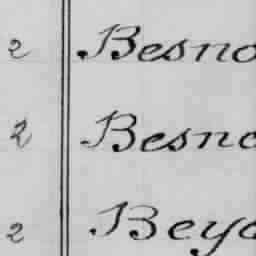 2 Besno
2 Besno
2 Beyo